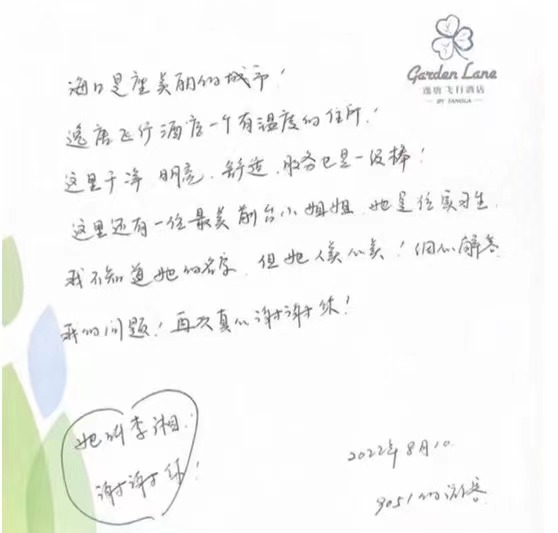 Garden Lane
逸唐飞行酒店
BY TANGLA
海口是座美丽的城市！
逸唐飞行酒店一个有温度的住所！
这里干净、明亮、舒适、服务也是一级棒！
这里还有一位最美前台小姐姐，她是位实习生，
我不知道她的名字，但她人美心美！细心解答
我的问题！再次真心谢谢你！
她叫李湘！
谢谢你！
2022年8月10
9051的游客